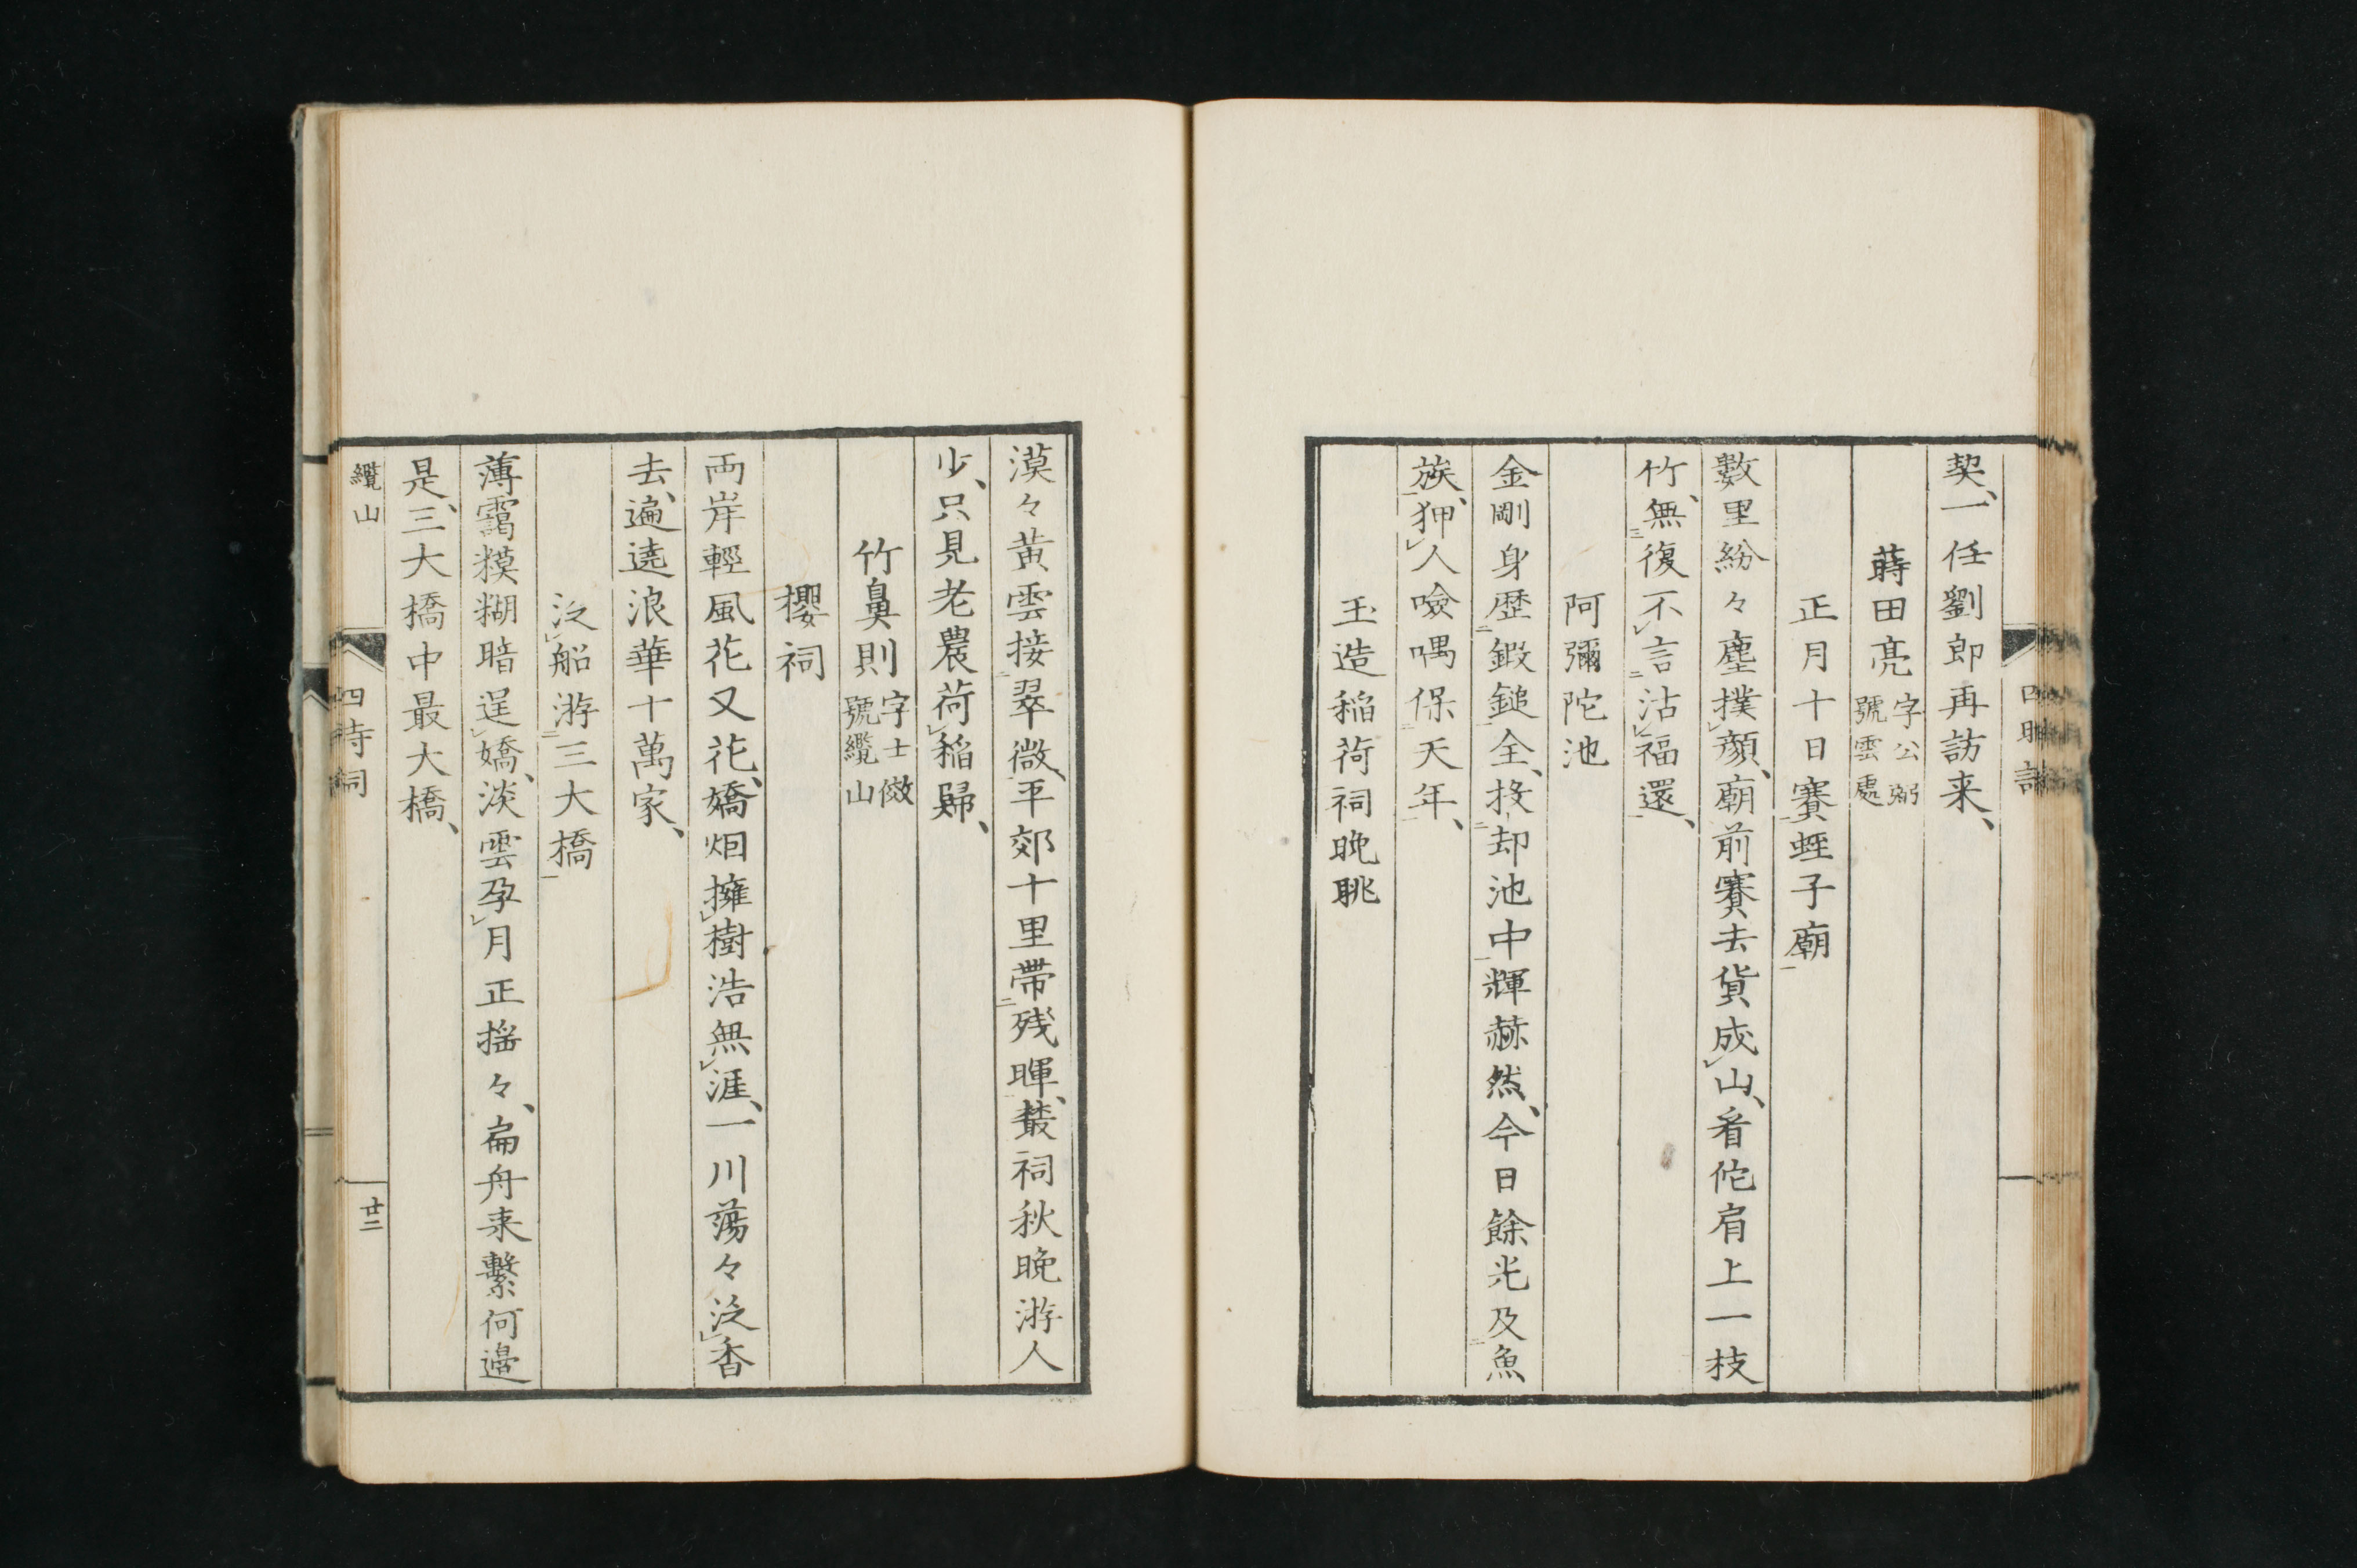 契、一任劉郎再訪来、
蒔田亮 字公弼 號雲處
正月十日賽蛭子廟
數里紛々塵撲顔、廟前賽去貨成山、看佗肩上一枝
竹、無復不言沽福還、
阿彌陀池
金剛身歴鍛鎚全、投却池中輝赫然、今日餘光及魚
族、狎人噞喁保天年、
玉造稲荷祠晩眺
漠々黄雲接翠微、平郊十里帯残暉、叢祠秋晩游人
少、只見老農荷稲歸、
竹鼻則 字士儆 號纜山
櫻祠
両岸輕風花又花、嬌烟擁樹浩無涯、一川蕩々泛香
去、遍遶浪華十萬家、
泛船游三大橋
薄靄糢糊暗逞嬌、淡雲孕月正揺々、扁舟来繋何邉
是、三大橋中最大橋、
纜山
四時詞
廿二